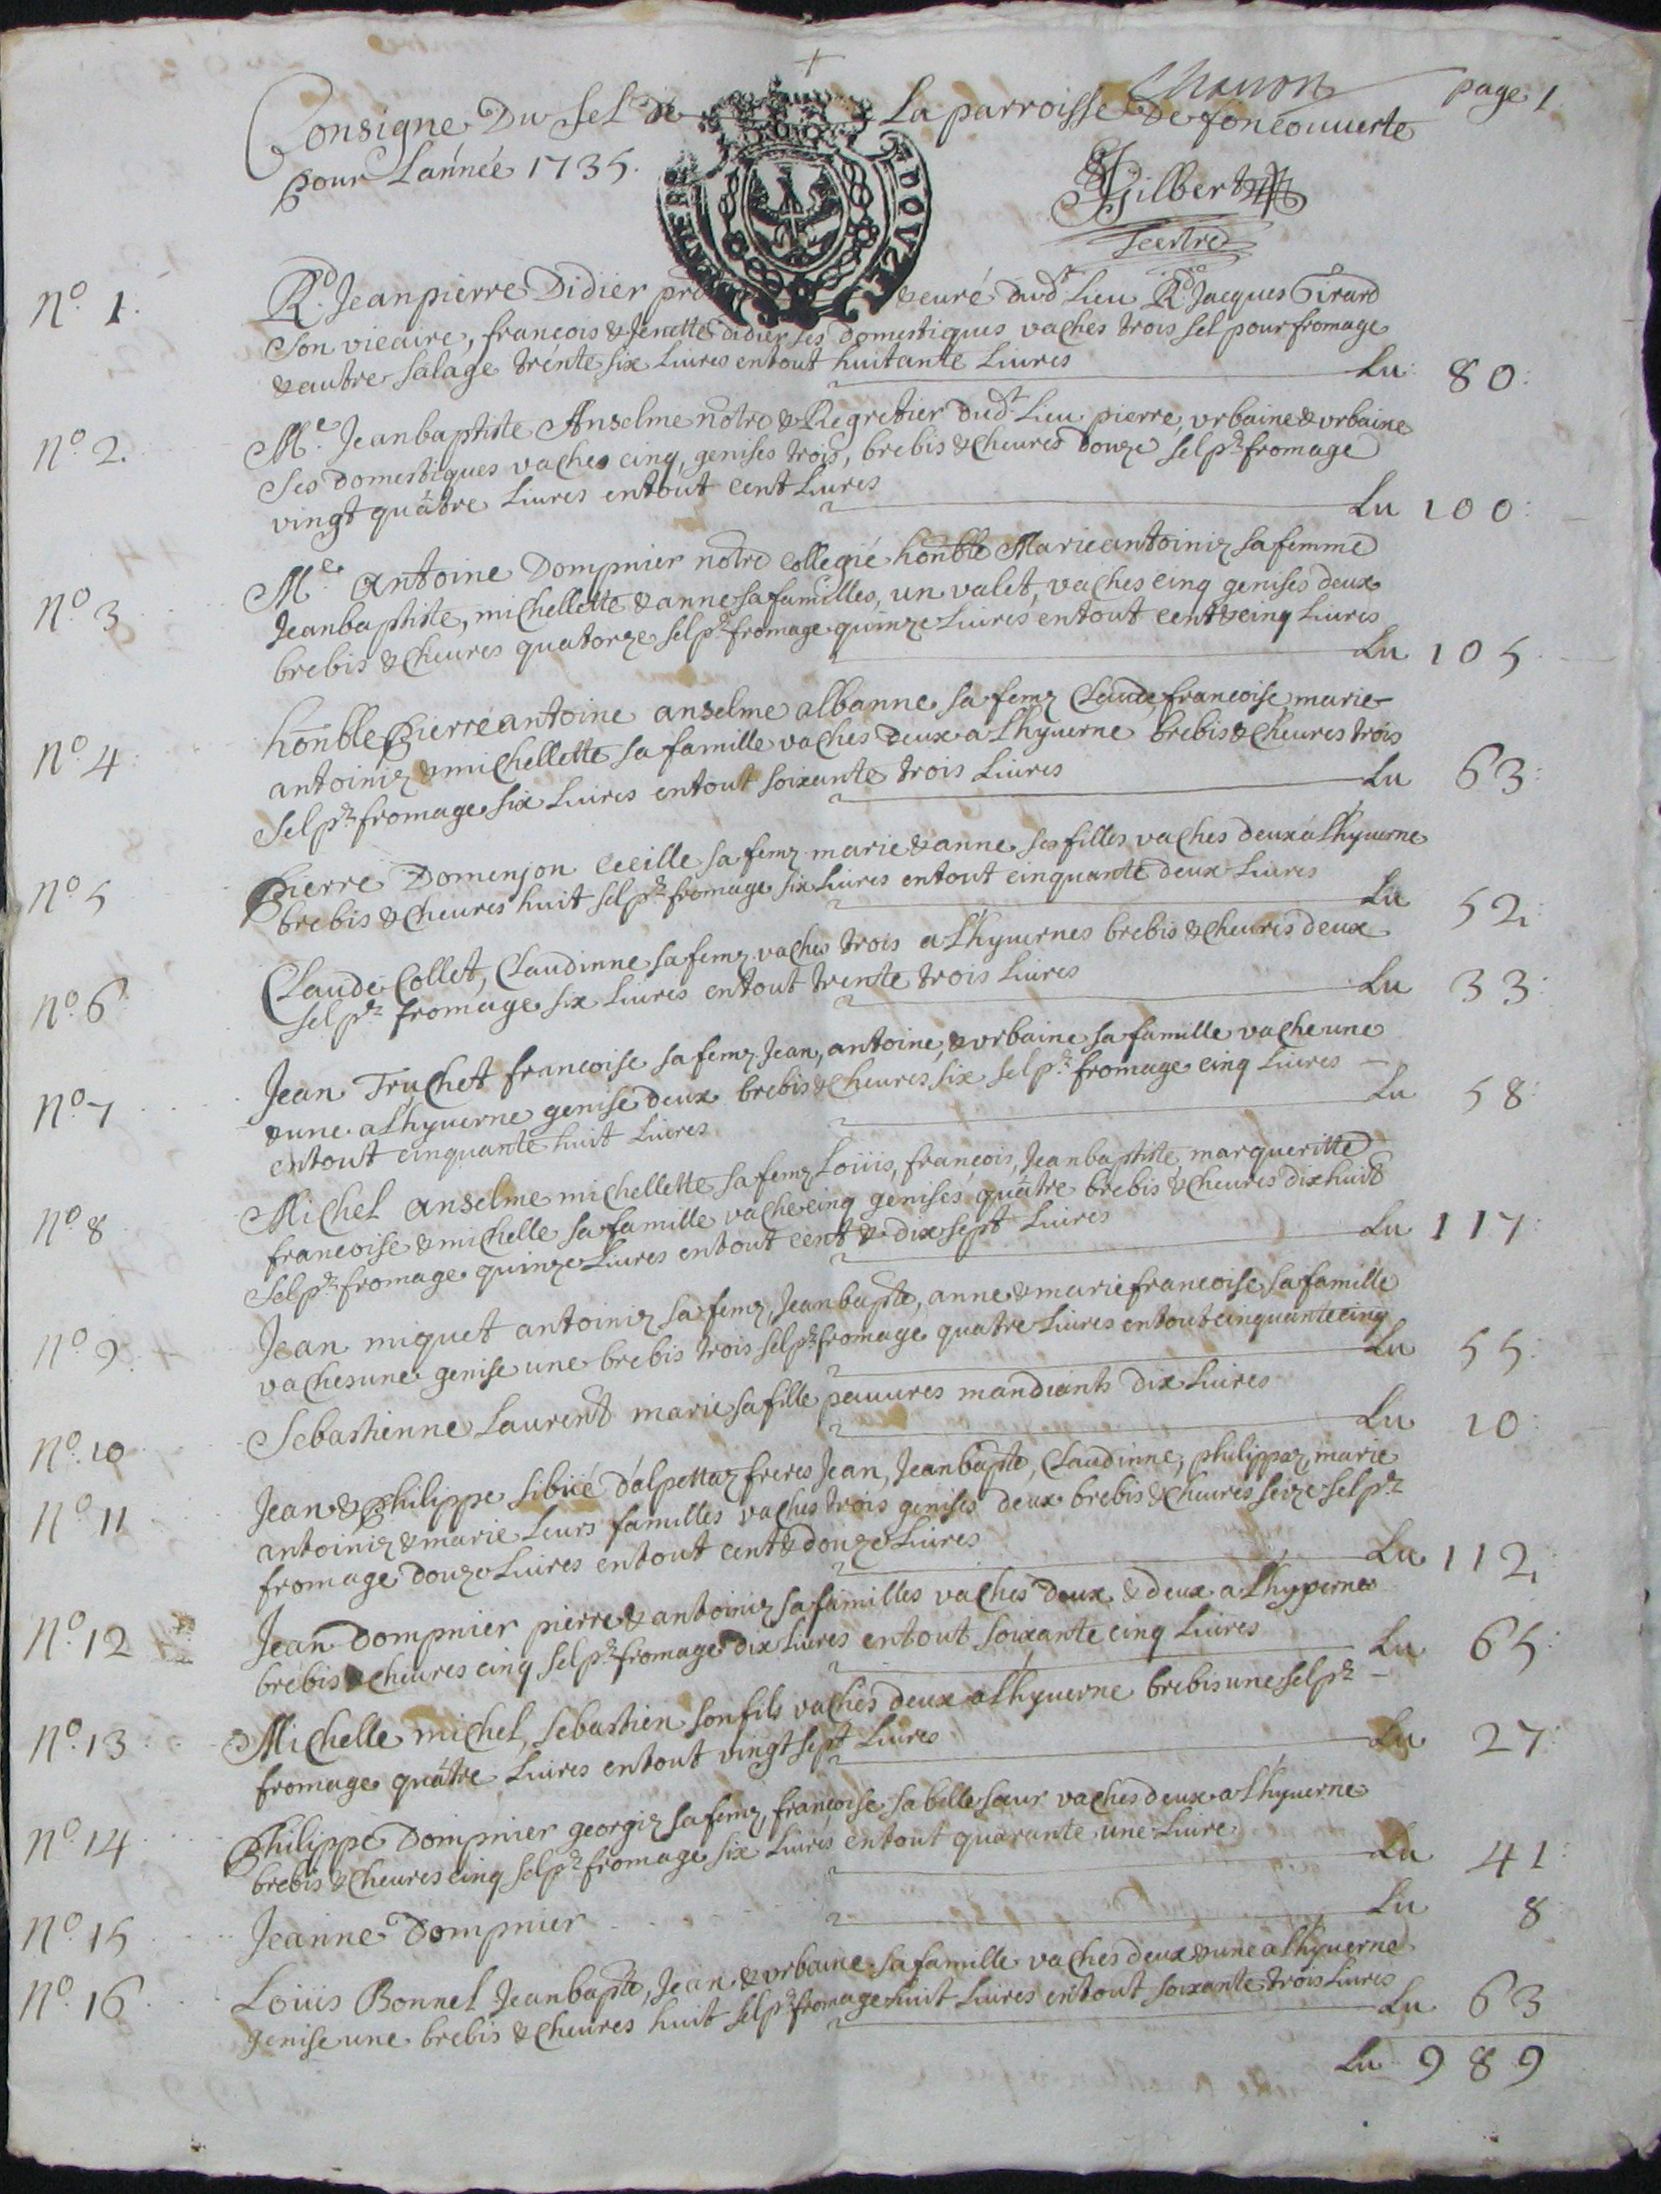 Chanon page 1
Consigne Du Sel de La parroisse De foncouuerte
pour Lánnéé 1735.
Gilbert
secrtre
DOUZE
DENIERS
No. 1. Rd. Jeanpierre Didier & curé dudt Lieu Rd. Jacques Girard
son vicaire, francois & Jenette didier ses domestiques vaches trois sel pour fromage
& autre salage trénte six Liures entout huitante Liures Lu: 80:
No. 2. Me. Jeanbaptiste Anselme notre & Regretier dudt Lieu pierre, vrbaine & vrbaine
ses domestiques vaches cinq, genises trois, brebis & cheures douze sel pr fromage
vingt quátre Liures entout cent Liures Lu 100:
No. 3 Me. Antoine Dompnier notre collegié honble Marie antoiniz sa femme
Jeanbaptiste, michellette & anne sa familles, un valet, vaches cinq genises deux
brebis & cheures quatorze sel pr fromage quinze Liures entout cent & cinq Liures Lu 105
No. 4: honble Pierre antoine anselme albanne sa femz Claude francoise marie
antoiniz & michellette sa famille vaches deux a Lhyuerne brebis & cheures trois
sel pr fromage six Liures entout soixante trois Liures Lu 63:
No. 5 Pierre Domenjon Cecille sa femz marie & anne ses filles vaches deux a Lhyuerne
brebis & cheures huit sel pr fromage six Liures entout cinquante deux Liures Lu 52:
No. 6 Claude Collet, Claudinne sa femz vaches trois a Lhyuernes brebis & cheures deux
sel pr fromage six Liures entout trente trois Liures Lu 33:
No. 7 Jean Truchet francoise sa femz Jean, antoine, & vrbaine sa famille vache une
& une a Lhyuerne genise deux brebis & cheures six sel pr fromage cinq Liures
entout cinquante huit Liures Lu 58:
No. 8 Michel Anselme michellette sa femz Loüis, francois, Jeanbaptiste, margueritte
francoise & michelle sa famille vache cinq genises quátre brebis & cheures dixhuit
sel pr fromage quinze Liures entout cent & dix sept Liures Lu 117:
No. 9: Jean miquet antoiniz sa femz, Jeanbapte, anne & marie francoise sa famille
vaches une genise une brebis trois sel pr fromage quatre Liures entout cinquante cinq Lu 55:
No. 10 Sebastienne Laurent marie sa fille pauures mandiants dix Liures Lu 10:
No. 11 Jean & Philippe Sibüé dálpettaz freres Jean, Jeanbapte, Claudinne, philippaz, marie
antoiniz & marie Leurs familles vaches trois genises deux brebis & cheures seize sel pr
fromage douze Liures entout cent & douze Liures Lu 112:
No. 12 Jean Dompnier pierre & antoiniz sa familles vaches deux & deux a Lhyvernes
brebis & cheures cinq sel pr fromage dix Liures entout soixante cinq Liures Lu 65:
No. 13: Michelle michel, Sebastien son fils vaches deux a Lhyuerne brebis une sel pr
fromage quátre Liures entout vingt sept Liures Lu 27:
No. 14 Philippe Dompnier georgiz sa femz, françoise sa belle sœur vaches deux a Lhyuerne
brebis & cheures cinq sel pr fromage six Liures entout quarante une Liure Lu 41:
No. 15 Jeanne Dompnier Lu 8
No. 16 Loüis Bonnel Jeanbapte, Jean & vrbaine sa famille vaches deux & une a Lhyuerne
genise une brebis & cheures huit sel pr fromage huit Liures entout soixante trois Liures Lu 63
Lu 989